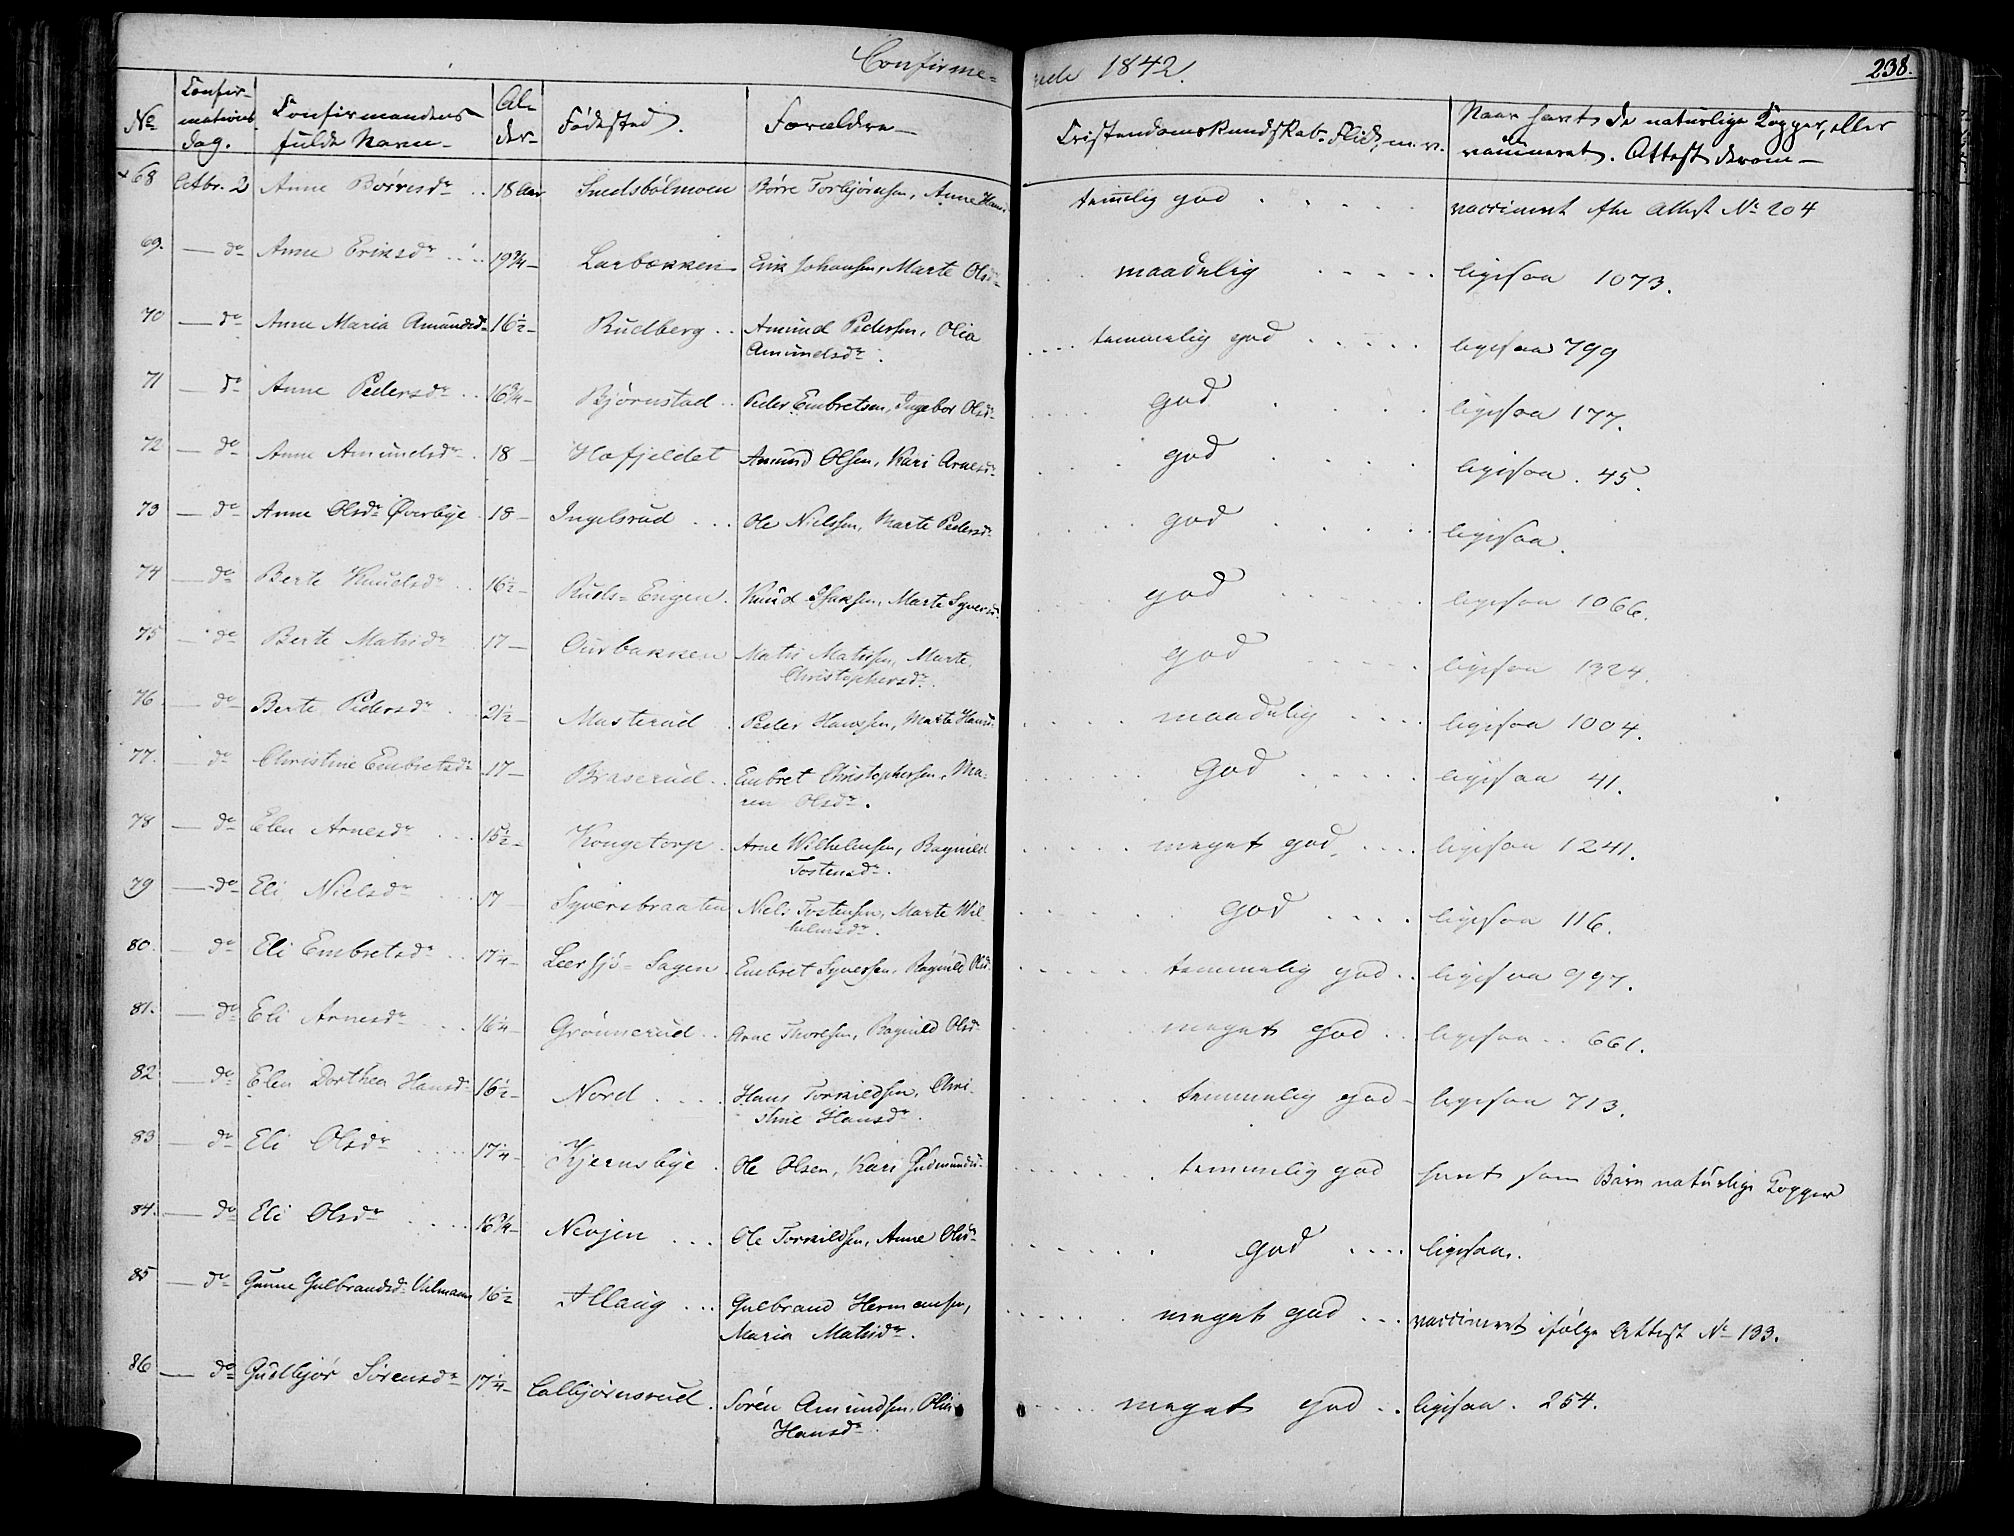 Confirme- rede 1842.
238.
No
Confir-
mations
dag.
Confirmandens
fulde Navn
Al-
der
Fødested.
Forældre
Cristendomskundskab, Flid, m. v.
Naar havt de naturlige Kopper, eller
vaccineret. Attest derom
68 Octbr. 2 Anne Børresdr .. 18 Aar Snedsbølmoen Børre Torbjørnsen, Anne Hansd temmelig god vaccineret efter Attest No 204
69. — do Anne Eriksdr 19 3/4 — Larbækken Erik Johansen, Marte Olsdr maadelig ligesaa 1073.
70 — do Anne Maria Amundsdr 16 1/2 — Rudberg .. Amund Pedersen, Olia
Amundsdr.
temmelig god ligesaa 799
71 — do Anne Pedersdr .. 16 3/4 — Bjørnstad .. Peder Embretsen, Ingebor Olsdr god ligesaa 177.
72 — do Anne Amundsdr . 18 — Hofjeldet Amund Olsen, Kari Arnesdr god ligesaa . 45.
73 — do Anne Olsdr Øverbye . 18 — Ingelsrud ... Ole Nielssen, Marte Pedersdr god ligesaa.
74 — do Berte Knudsdr .. 16 1/2 — Ruds-Engen . Knud Isaksen, Marte Syversdr god ligesaa 1066.
75 — do Berte Matisdr 17 — Ourbakken Matis Matissen, Marte
Christophersdr.
god ligesaa 1324.
76 — do Berte Pedersdr .. 21 1/2 — Musterud . Peder Hanssen, Marte Hansd maadelig ligesaa 1004.
77. — do Christine Embretsdr 17 — Braserud .. Embret Christophersen, Ma-
ren Olsdr.
God ligesaa 41.
78 — do Elen Arnesdr ... 15 1/2 — Kongetorp . Arne Wilhelmsen, Ragnild
Tostensdr.
meget god. ligesaa 1241.
79 — do Eli Nielsdr ... 17 — Syversbraaten Niels Tostensen, Marte Wil
helmsdr.
god ligesaa 116.
80. — do Eli Embretsdr .. 17 1/4 — Leersjø-Sagen . Embret Syversen, Ragnild Olsd temmelig god .. ligesaa 997.
81. — do Eli Arnesdr ... 16 1/4 — Grønnerud .. Arne Thorsen, Ragnild Olsd meget god .. ligesaa .. 661.
82 — do Elen Dorthea Hansdr 16 1/2 — Nord .... Hans Torkildsen, Chri-
stine Hansdr.
temmelig god — ligesaa 713.
83 — do Eli Olsdr .... 17 1/4 — Kjernsbye . Ole Olsen, Kari Gudmundsd temmelig god havt som Barn naturlige Kopper
84. — do Eli Olsdr .... 16 3/4 — Nevjen ... Ole Torkildsen, Anne Olsdr god .... ligesaa.
85 — do Gunne Gulbrandsdr Valmann 16 1/2 — Haug ... Gulbrand Hermansen,
Maria Matisdr.
meget god ... vaccineret ifølge Attest No 133.
86 — do Gudbjør Sørensdr 17 1/4 — Colbjørnsrud . Søren Amundsen, Olia
Hansdr.
meget god .. ligesaa . 254.